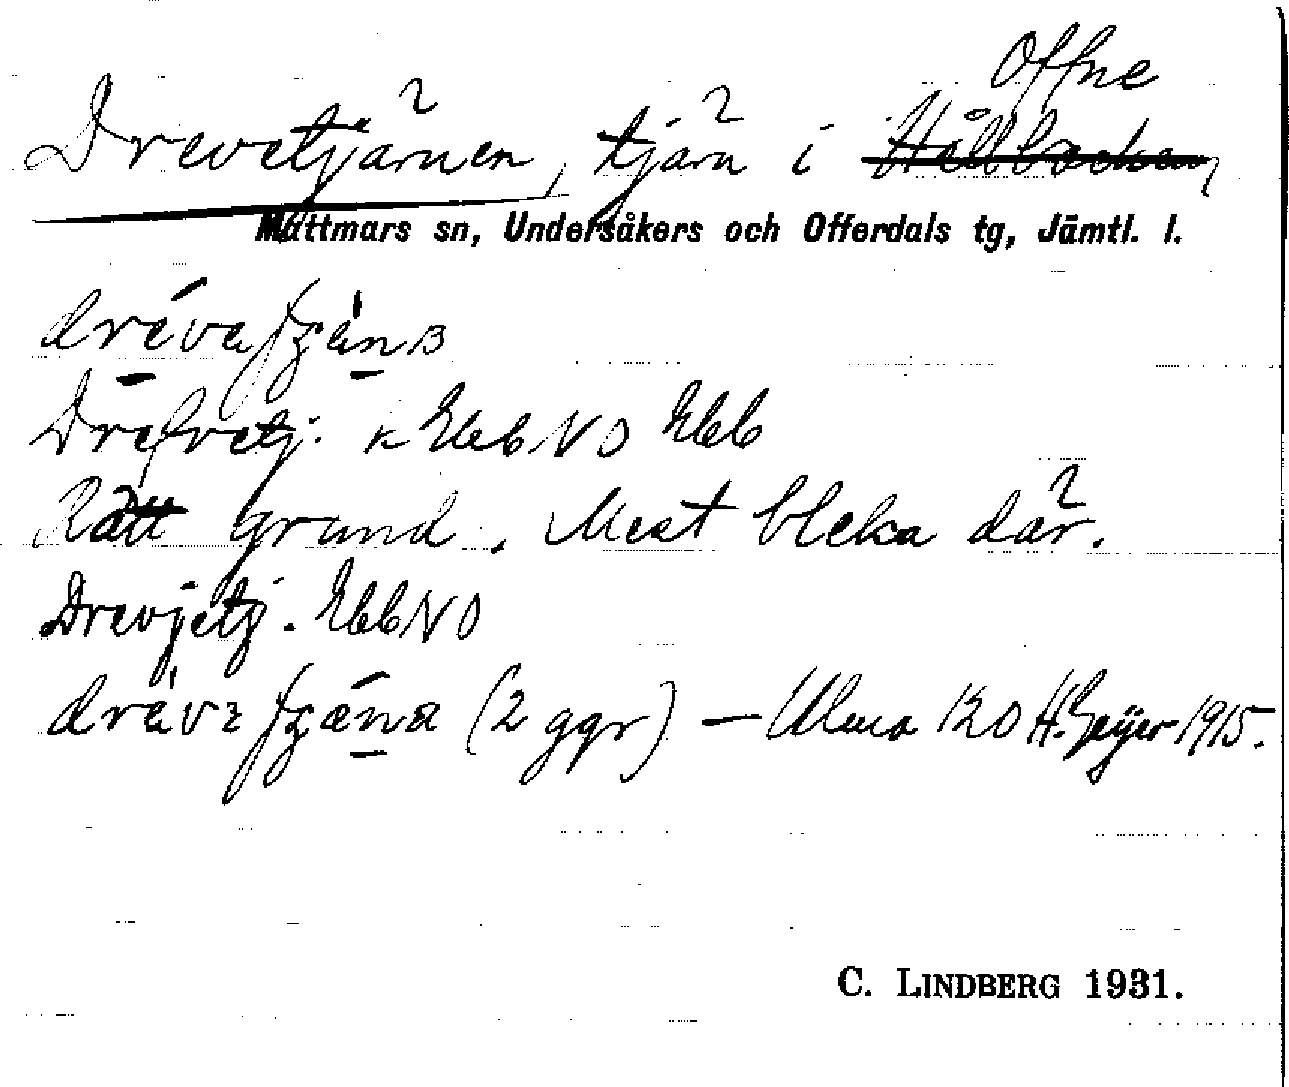 Offne
Drevetjärnen, tjärn i Hållbacken,
Mattmars sn, Undersåkers och Offerdals tg, Jämtl. l.
Drefvetj. K EbbNO Ebb
Rätt grund. Mest bleka där.
Drevjetj. EbbNO
(2 ggr) — Ulma 120 H. Geijer 1915.
C. LINDBERG 1931.